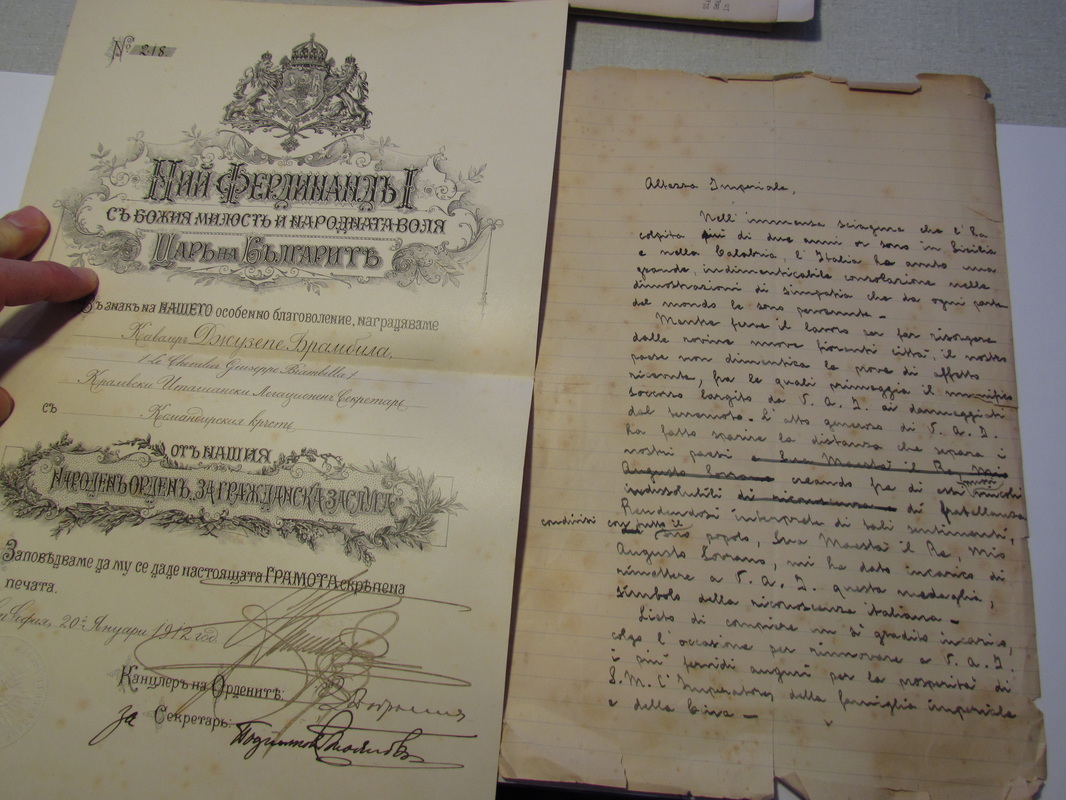 № 218
НИЙ ФЕРДИНАНДЪ I
СЪ БОЖИЯ МИЛОСТЬ И НАРОДНАТА ВОЛЯ
ЦАРЬ НА БЪЛГАРИТѢ
Въ знакъ на НАШЕТО особенно благоволение, наградяваме
Кавалръ Джузепе Брамбила,
Le Chevalier Giuseppe Brambilla
Кралевски Италиански Легационенъ Секретарь
съ Командирския кръстъ
ОТЪ НАШИЯ
НАРОДЕНЪ ОРДЕНЪ ЗА ГРАЖДАНСКА ЗАСЛУГА
Заповѣдваме да му се даде настоящата ГРАМОТА скрѣпена
печата.
София, 20 Януари 1912 год.
Канцлеръ на Орденитѣ:
за Секретарь:
Altezza Imperiale,
Nell'immensa sciagura che l'ha
colpita più di due anni or sono in Sicilia
e nella Calabria, l'Italia ha avuto una
grande, indimenticabile consolazione nelle
dimostrazioni di simpatia che da ogni parte
del mondo le sono pervenute.
Mentre ferve il lavoro per far risorgere
dalle rovine nuove fiorenti città, il nostro
paese non dimentica le prove di affetto
ricevute, fra le quali primeggia il munifico
soccorso largito da V. A. I. ai danneggiati
dal terremoto. L'atto generoso di V. A. I.
ha fatto sparire la distanza che separa i
nostri paesi e Sua Maestà il Re Mio
Augusto Sovrano creando fra di essi vincoli
indissolubili di riconoscenza di fratellanza
Rendendosi interprete di tali sentimenti,
condivisi con tutto il suo popolo, Sua Maestà il Re, mio
Augusto Sovrano, mi ha dato incarico di
rimettere a V. A. I. questa medaglia,
simbolo della riconoscenza italiana.
Lieto di compiere un sì gradito incarico,
colgo l'occasione per rinnovare a V. A. I.
i più fervidi auguri per la prosperità di
S. M. l'Imperatore, della famiglia imperiale
e della Cina